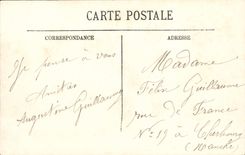 CARTE POSTALE
CORRESPONDANCE
ADRESSE
Je pense à vous
Amitiés
Augustine Guillaume
Madame
Félix Guillaume
rue de France
No 19 à Cherbourg
(Manche)